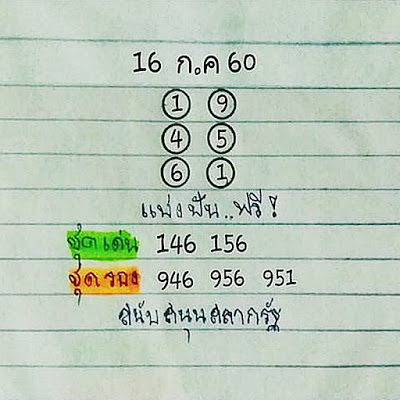 16 ก.ค 60
1 9
4 5
6 1
แบ่งปัน..ฟรี!
ชุดเด่น 146 156
ชุดรอง 946 956 951
สนับสนุนสลากรัฐ